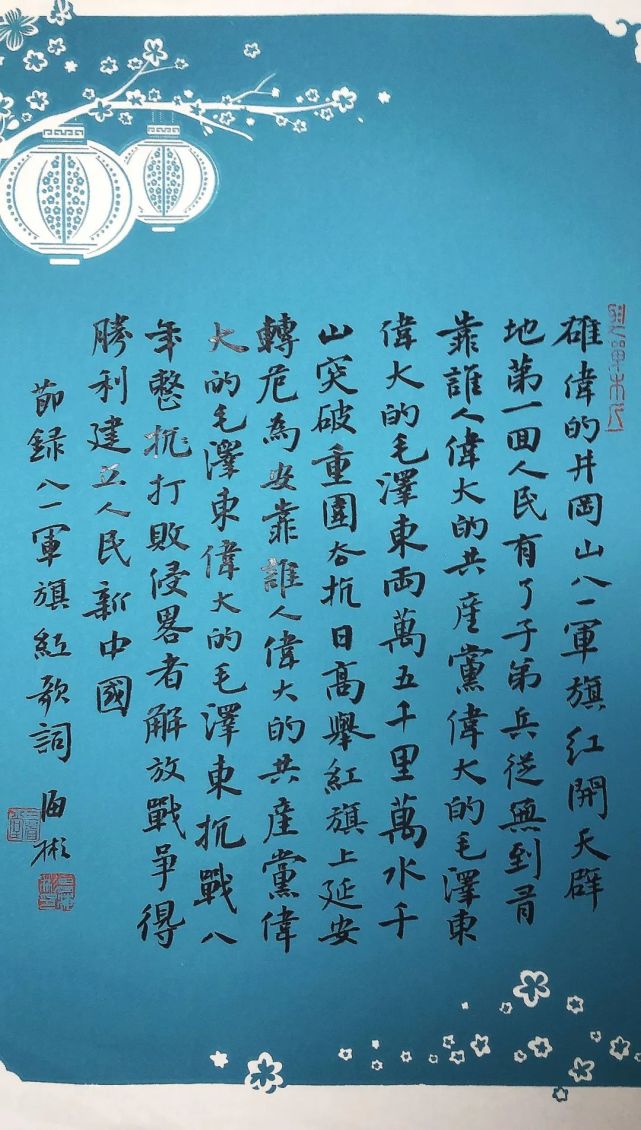 雄偉的井岡山八一軍旗紅開天辟
地第一回人民有了子弟兵從無到有
靠誰人偉大的共產黨偉大的毛澤東
偉大的毛澤東両萬五千里萬水千
山突破重圍為抗日高舉紅旗上延安
轉危為安靠誰人偉大的共產黨偉
大的毛澤東偉大的毛澤東抗戰八
年整抗打敗侵畧者解放戰爭得
勝利建立人民新中國
節録八一軍旗紅歌詞 海彬